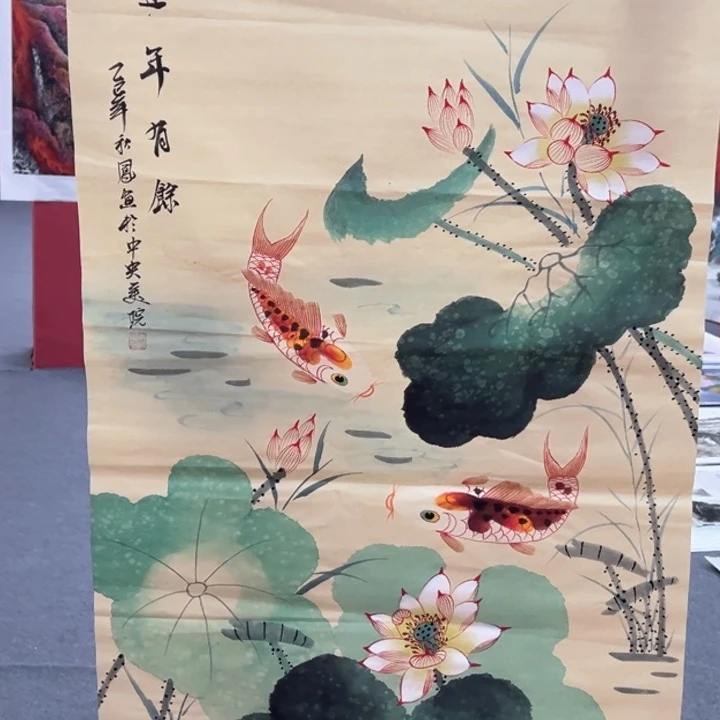 年有餘
乙巳年秋國魚於中央美院